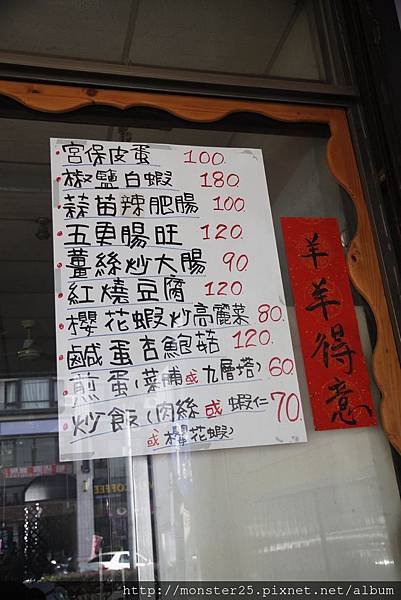 宮保皮蛋 100.
椒鹽白蝦 180.
蒜苗辣肥腸 100.
五更腸旺 120.
薑絲炒大腸 90.
紅燒豆腐 120
櫻花蝦炒高麗菜 80.
鹹蛋杏鮑菇 120.
煎蛋(菜脯或九層塔) 60.
炒飯(肉絲或蝦仁 70
或櫻花蝦)
羊羊得意
COFFEE
http://monster25.pixnet.net/album